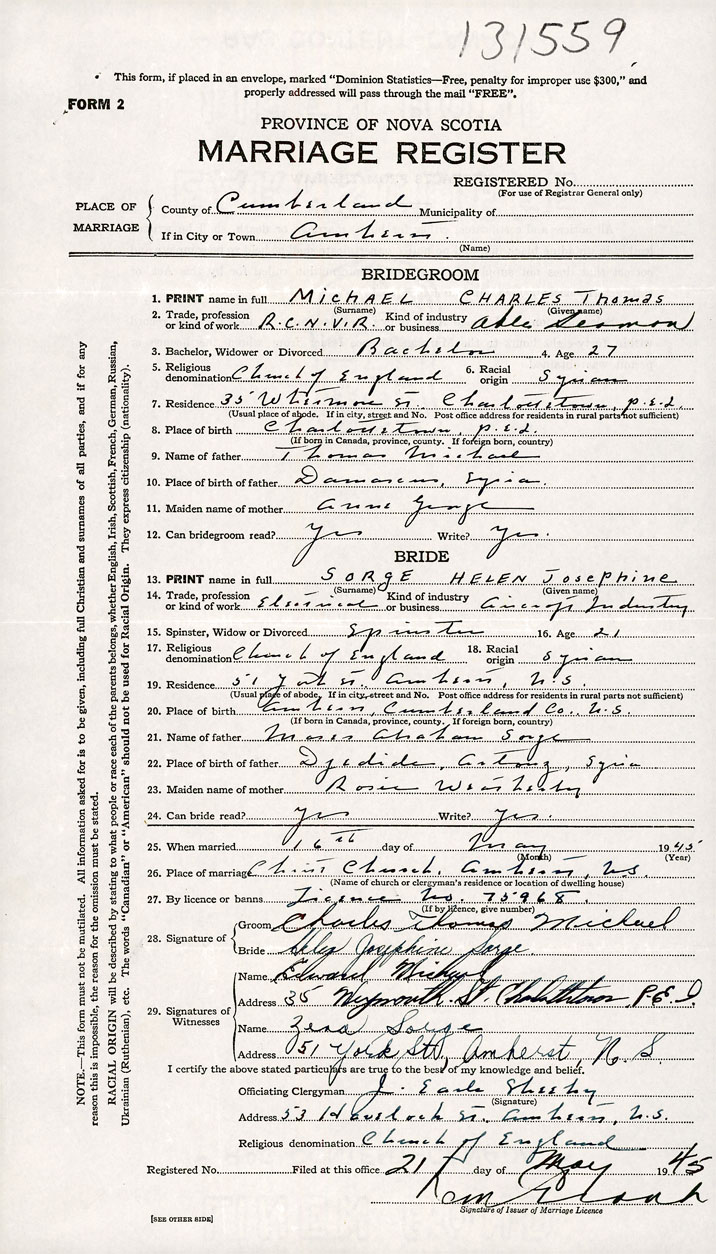 131559
This form, if placed in an envelope, marked "Dominion Statistics—Free, penalty for improper use $300," and
properly addressed will pass through the mail "FREE".
FORM 2
PROVINCE OF NOVA SCOTIA
MARRIAGE REGISTER
REGISTERED No.
(For use of Registrar General only)
PLACE OF MARRIAGE
County of Cumberland Municipality of
If in City or Town Amherst.
(Name)
BRIDEGROOM
1. PRINT name in full MICHAEL CHARLES Thomas
(Surname) (Given name)
2. Trade, profession or kind of work R.C.N.V.R. Kind of industry or business Able Seaman
3. Bachelor, Widower or Divorced Bachelor 4. Age 27
5. Religious denomination Church of England 6. Racial origin Syrian
7. Residence 35 St., Charlottetown, P.E.I.
(Usual place of abode. If in city, street and No. Post office address for residents in rural parts not sufficient)
8. Place of birth Charlottetown, P.E.I.
(If born in Canada, province, county. If foreign born, country)
9. Name of father Thomas Michael
10. Place of birth of father Damascus, Syria.
11. Maiden name of mother Anne George
12. Can bridegroom read? Yes Write? Yes.
BRIDE
13. PRINT name in full SORGE HELEN Josephine
(Surname) (Given name)
14. Trade, profession or kind of work Electrical Kind of industry or business Aircraft Industry
15. Spinster, Widow or Divorced Spinster 16. Age 21
17. Religious denomination Church of England 18. Racial origin Syrian
19. Residence 51 York St., Amherst, N.S.
(Usual place of abode. If in city, street and No. Post office address for residents in rural parts not sufficient)
20. Place of birth Amherst, Cumberland Co., N.S.
(If born in Canada, province, county. If foreign born, country)
21. Name of father Moses Abraham Sorge
22. Place of birth of father Djedide, Syria
23. Maiden name of mother Rosie
24. Can bride read? Yes Write? Yes.
25. When married 16th day of May 1945
(Month) (Year)
26. Place of marriage Christ Church, Amherst, N.S.
(Name of church or clergyman's residence or location of dwelling house)
27. By licence or banns Licence No. 75968.
(If by licence, give number)
28. Signature of
Groom Charles Thomas Michael
Bride Josephine Sorge
29. Signatures of Witnesses
Name Edward Michael
Address 35 Weymouth St. Charlottetown P.E.I.
Name Zena Sorge
Address 51 York St., Amherst, N.S.
I certify the above stated particulars are true to the best of my knowledge and belief.
Officiating Clergyman J. Earle
(Signature)
Address 53 Havelock St., Amherst, N.S.
Religious denomination Church of England
Registered No. Filed at this office 21 day of May 1945
Signature of Issuer of Marriage Licence
[SEE OTHER SIDE]
NOTE.—This form must not be mutilated. All information asked for is to be given, including full Christian and surnames of all parties, and if for any
reason this is impossible, the reason for the omission must be stated.
RACIAL ORIGIN will be described by stating to what people or race each of the parents belongs, whether English, Irish, Scottish, French, German, Russian,
Ukrainian (Ruthenian), etc. The words "Canadian" or "American" should not be used for Racial Origin. They express citizenship (nationality).